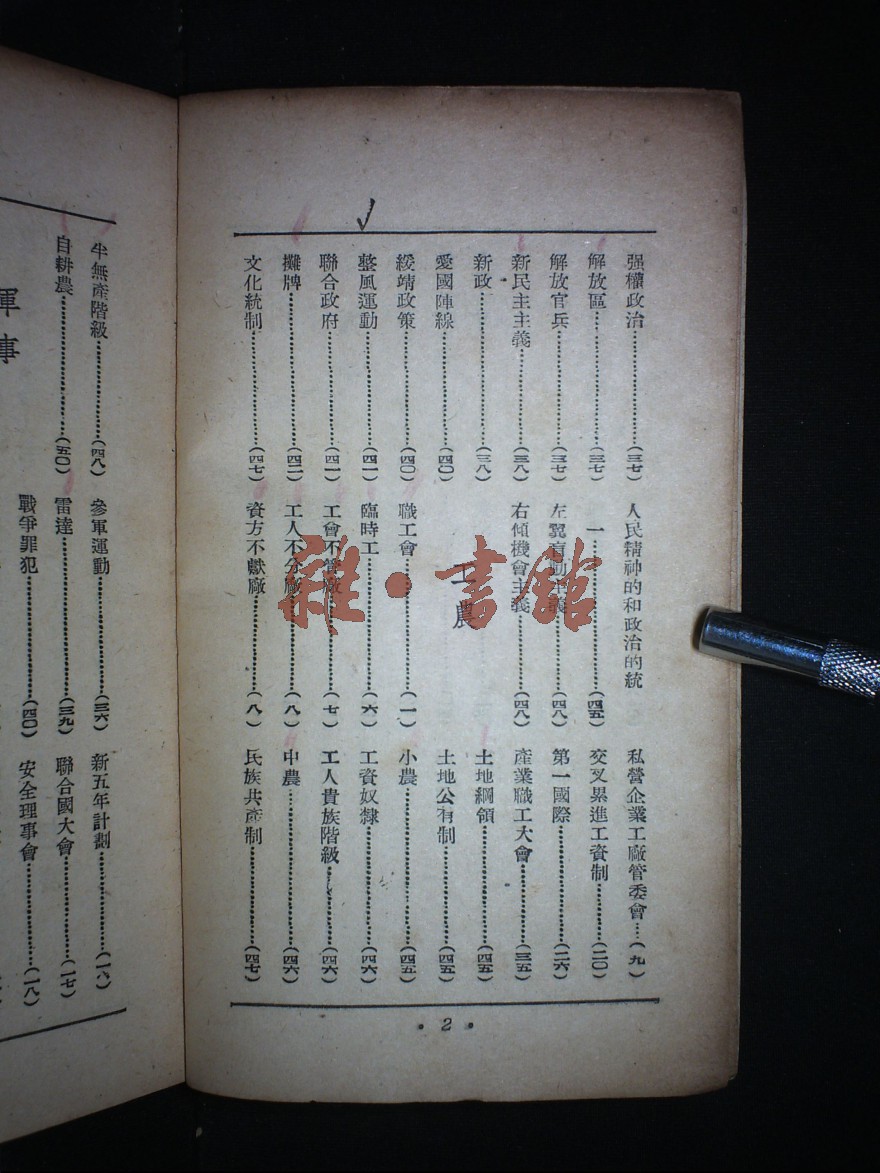 强權政治⋯⋯(三七)
解放區⋯⋯(三七)
解放官兵⋯⋯(三七)
新民主主義⋯⋯(三八)
新政⋯⋯(三八)
愛國陣線⋯⋯(四〇)
綏靖政策⋯⋯(四〇)
整風運動⋯⋯(四一)
聯合政府⋯⋯(四一)
攤牌⋯⋯(四二)
文化統制⋯⋯(四七)
人民精神的和政治的統
一⋯⋯(四五)
左翼盲動主義⋯⋯(四八)
右傾機會主義⋯⋯(四八)
工農
職工會⋯⋯(一)
臨時工⋯⋯(六)
工會不管廠⋯⋯(七)
工人不分廠⋯⋯(八)
資方不獻廠⋯⋯(八)
私營企業工廠管委會⋯⋯(九)
交叉累進工資制⋯⋯(二〇)
第一國際⋯⋯(二六)
產業職工大會⋯⋯(三五)
土地綱領⋯⋯(四五)
土地公有制⋯⋯(四五)
小農⋯⋯(四五)
工資奴隸⋯⋯(四六)
工人貴族階級⋯⋯(四六)
中農⋯⋯(四六)
民族共產制⋯⋯(四七)
• 2 •
半無產階級⋯⋯(四八)
自耕農⋯⋯(五〇)
軍事
參軍運動⋯⋯(三六)
雷達⋯⋯(三九)
戰爭罪犯⋯⋯(四〇)
新五年計劃⋯⋯(一六)
聯合國大會⋯⋯(一七)
安全理事會⋯⋯(一八)
雜·書館